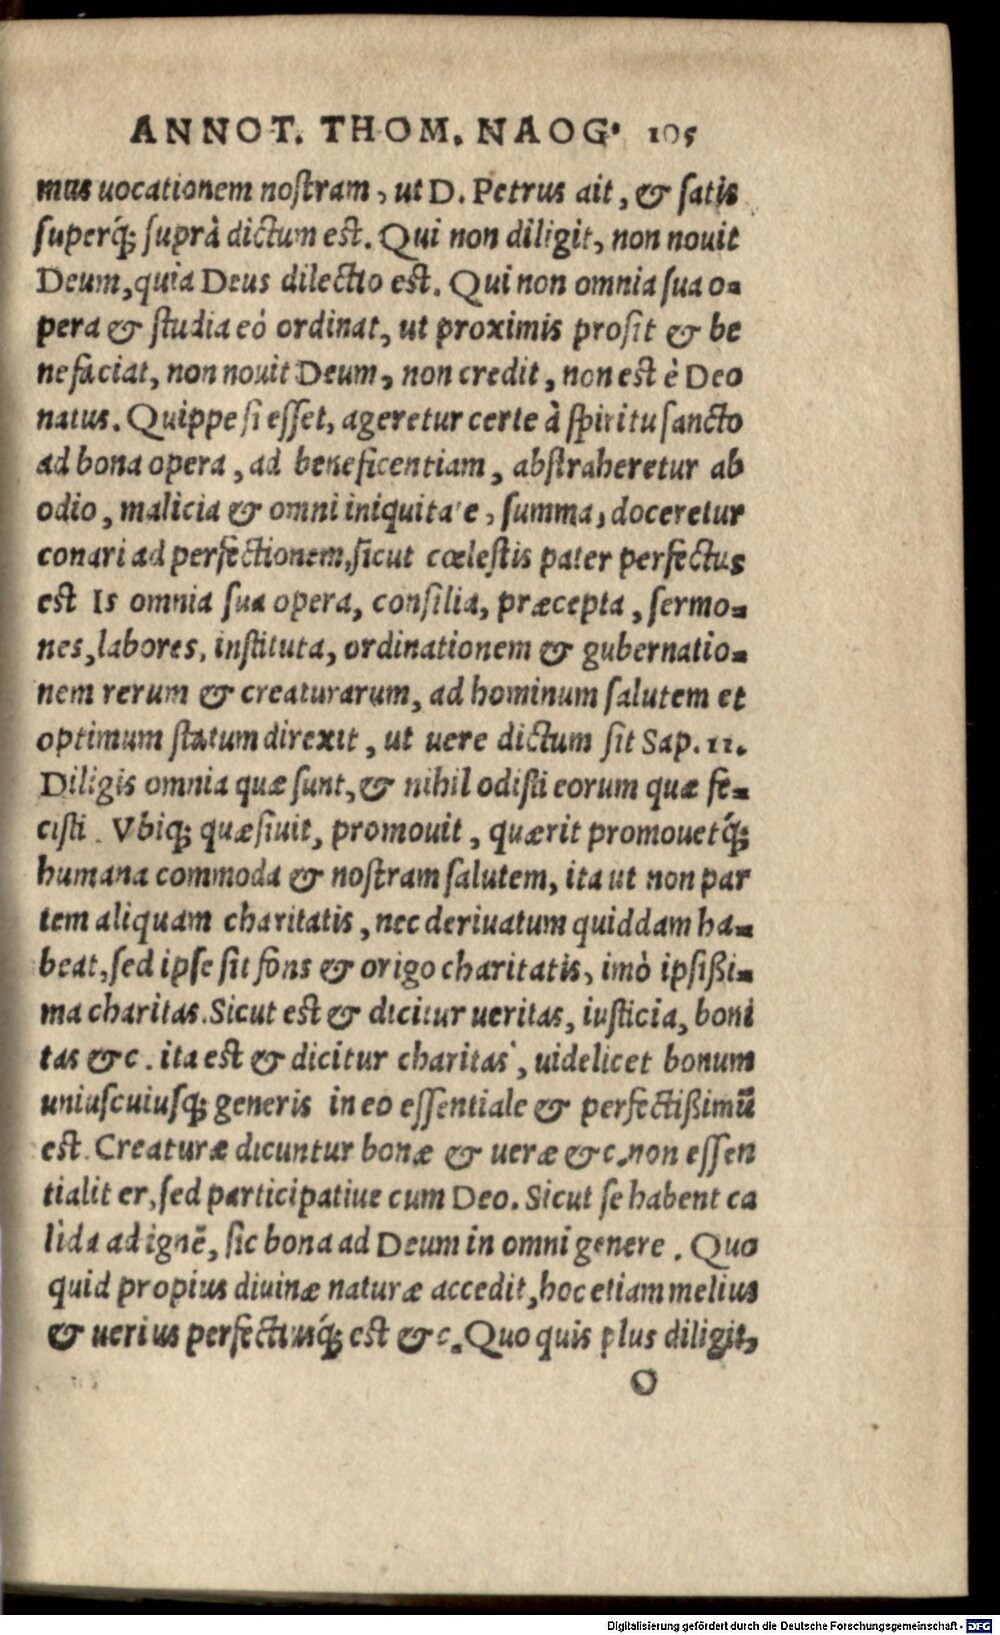 ANNOT. THOM. NAOG. 105
mus uocationem nostram, ut D. Petrus ait, & satis
superq́; suprà dictum est. Qui non diligit, non nouit
Deum, quia Deus dilectio est. Qui non omnia sua o-
pera & studia eò ordinat, ut proximis prosit & be
nefaciat, non nouit Deum, non credit, non est è Deo
natus. Quippe si esset, ageretur certe à spiritu sancto
ad bona opera, ad beneficentiam, abstraheretur ab
odio, malicia & omni iniquitate, summa, doceretur
conari ad perfectionem, sicut cœlestis pater perfectus
est Is omnia sua opera, consilia, præcepta, sermo-
nes, labores, instituta, ordinationem & gubernatio-
nem rerum & creaturarum, ad hominum salutem et
optimum statum direxit, ut uere dictum sit Sap. 11.
Diligis omnia quæ sunt, & nihil odisti eorum quæ fe-
cisti. Vbiq; quæsiuit, promouit, quærit promouetq́;
humana commoda & nostram salutem, ita ut non par
tem aliquam charitatis, nec deriuatum quiddam ha-
beat, sed ipse sit fons & origo charitatis, imò ipsißi-
ma charitas. Sicut est & dicitur ueritas, iusticia, boni
tas &c. ita est & dicitur charitas, uidelicet bonum
uniuscuiusq; generis in eo essentiale & perfectißimū
est. Creaturæ dicuntur bonæ & ueræ &c. non essen
tialiter, sed participatiue cum Deo. Sicut se habent ca
lida ad ignē, sic bona ad Deum in omni genere. Quo
quid propius diuinæ naturæ accedit, hoc etiam melius
& uerius perfectiusq́; est &c. Quo quis plus diligit,
O
Digitalisierung gefördert durch die Deutsche Forschungsgemeinschaft - DFG